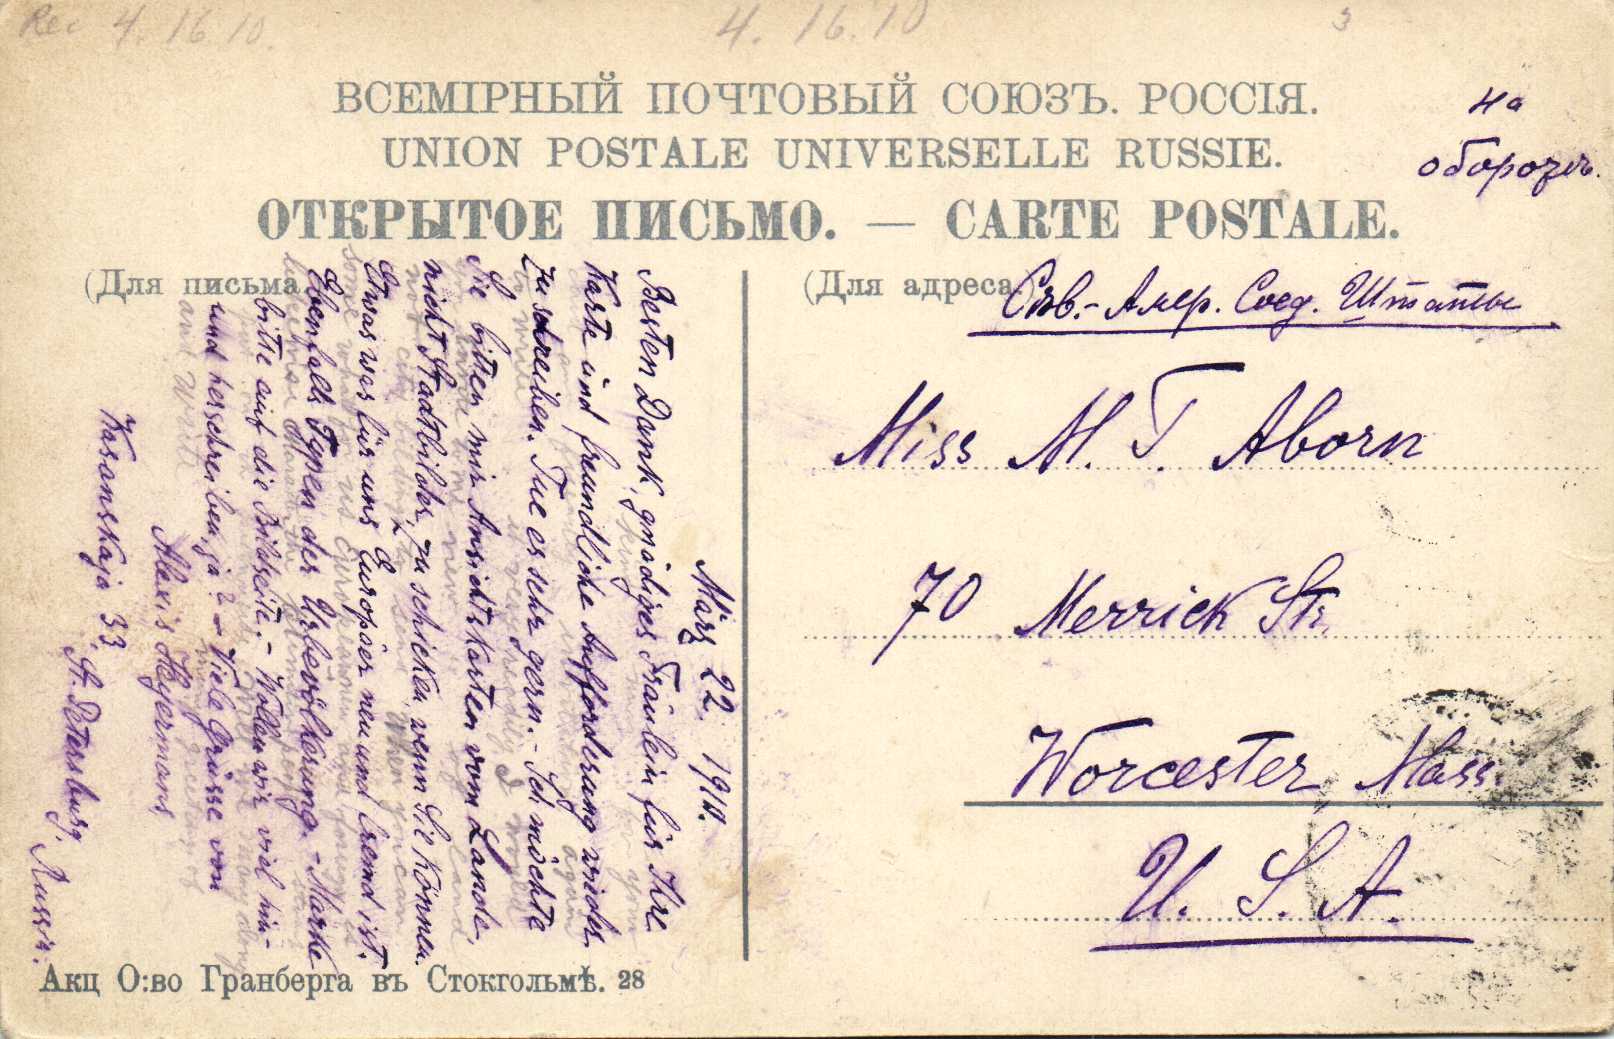 Rec 4.16.10.
4.16.10
3
ВСЕМІРНЫЙ ПОЧТОВЫЙ СОЮЗЪ. РОССІЯ.
UNION POSTALE UNIVERSELLE RUSSIE.
ОТКРЫТОЕ ПИСЬМО. — CARTE POSTALE.
на
оборотѣ.
(Для письма
(Для адреса
Сѣв.-Амер. Соед. Штаты
Miss M. T. Aborn
70 Merrick Str.
Worcester Mass.
U. S. A.
März 22. 1910.
Besten Dank, gnädiges Fräulein für Ihre
Karte und freundliche Aufforderung wieder
zu schreiben. Tue es sehr gern. – Ich möchte
Sie bitten mir Ansichtskarten vom Lande,
nicht Stadtbilder, zu schicken, wenn Sie können.
Etwas was für uns Europäer neu und fremd ist.
Ebenfalls Typen der Urbevölkerung. – Marke
bitte auf die Bildseite. – Wollen wir viel hin-
und herschreiben, ja? – Viele Grüsse von
Alexis Hegermans
Kasanskaja 33,
St. Petersburg,
Russia.
Акц О:во Гранберга въ Стокгольмѣ. 28